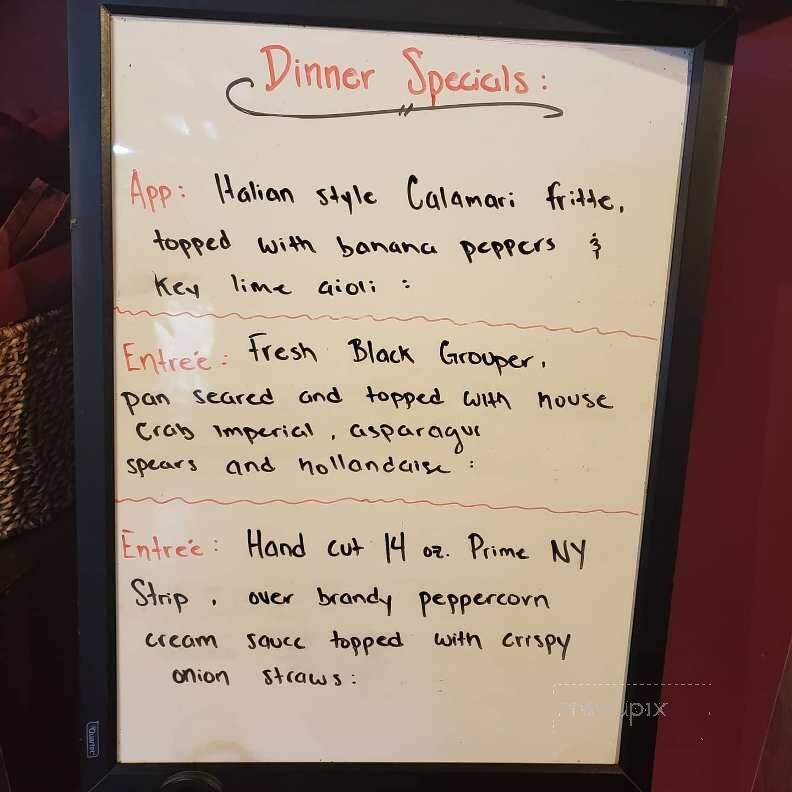 Dinner Specials:
App: Italian style Calamari fritte,
topped with banana peppers &
Key lime aioli :
Entreé: Fresh Black Grouper,
pan seared and topped with house
Crab Imperial, asparagus
spears and hollandaise :
Entreé: Hand cut 14 oz. Prime NY
Strip, over brandy peppercorn
cream sauce topped with crispy
onion straws:
Quartet